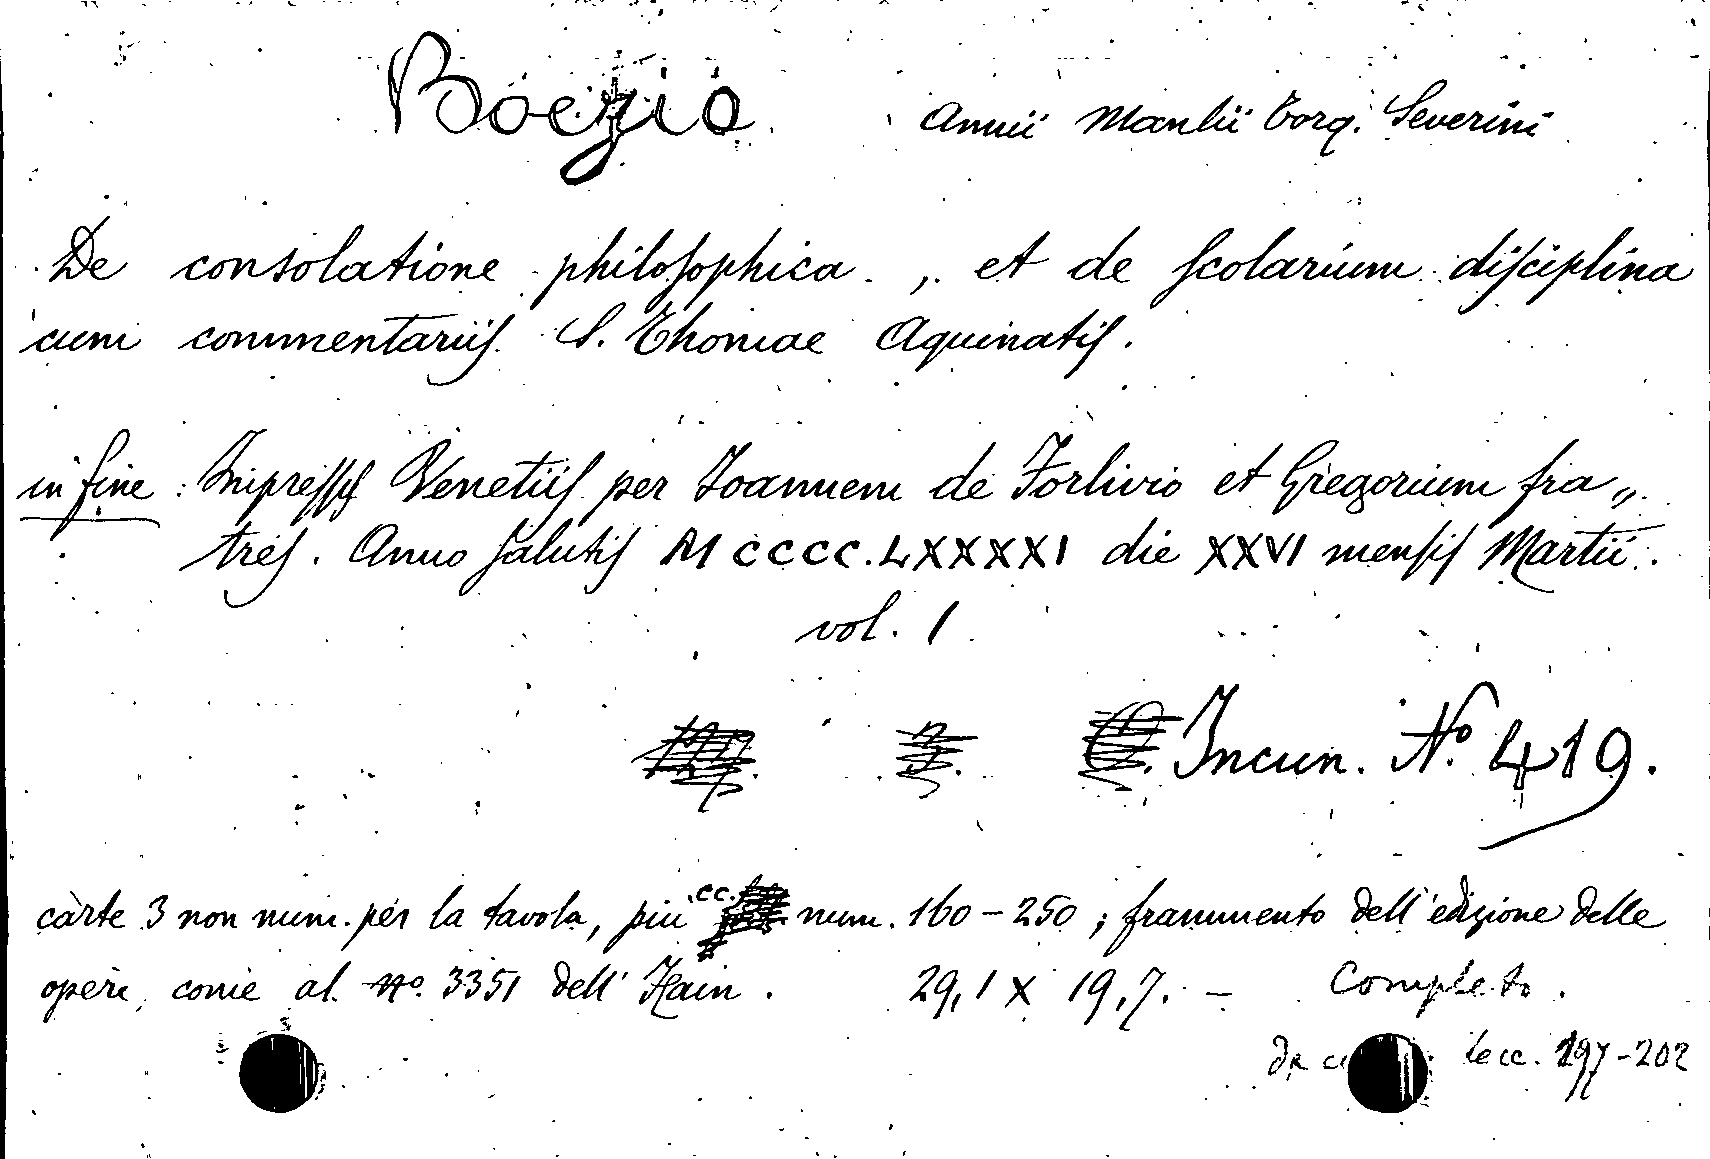 Boezio Annii Manlii Torq. Severini
De consolatione philosophica, et de scolarium disciplina
cum commentariis S. Thomae Aquinatis.
in fine : Impressus Venetiis per Ioannem de Forlivio et Gregorium fra„
tres. Anno salutis MCCCC.LXXXXI die XXVI mensis Martii.
vol. 1
Incun. Nº 419.
carte 3 non num. per la tavola, piu cc. num. 160-250 ; frammento dell'edizione delle
opere, come al nº. 3351 dell'Hain. 29,1 x 19,7. - Completo.
197-202